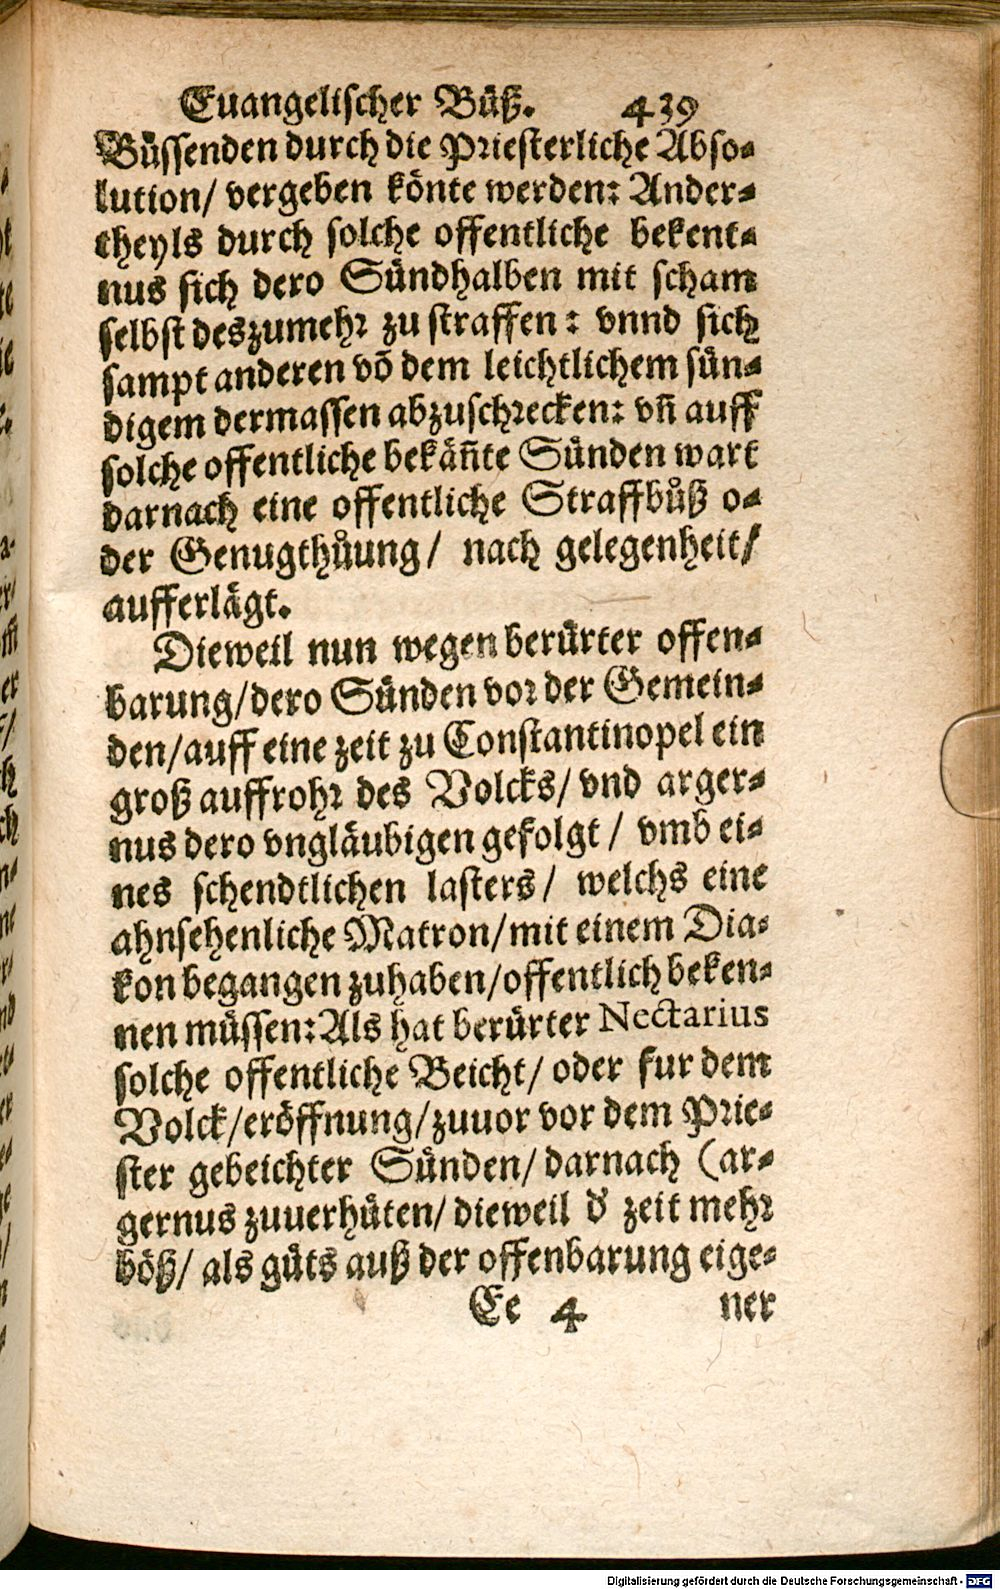 Euangelischer Bůß. 439
Büssenden durch die Priesterliche Abso-
lution/ vergeben könte werden: Ander-
theyls durch solche offentliche bekent-
nus sich dero Sündhalben mit scham
selbst deszumehr zu straffen: vnnd sich
sampt anderen võ dem leichtlichem sün-
digem dermassen abzuschrecken: vñ auff
solche offentliche bekäñte Sünden wart
darnach eine offentliche Straffbůß o-
der Genugthůung/ nach gelegenheit/
aufferlägt.
Dieweil nun wegen berürter offen-
barung/dero Sünden vor der Gemein-
den/auff eine zeit zu Constantinopel ein
groß auffrohr des Volcks/ vnd arger-
nus dero vngläubigen gefolgt/ vmb ei-
nes schendtlichen lasters/ welchs eine
ahnsehenliche Matron/mit einem Dia-
kon begangen zuhaben/offentlich beken-
nen müssen: Als hat berürter Nectarius
solche offentliche Beicht/ oder fur dem
Volck/eröffnung/zuuor vor dem Prie-
ster gebeichter Sünden/ darnach (ar-
gernus zuuerhüten/ dieweil d' zeit mehr
böß/ als güts auß der offenbarung eige-
Ee 4 ner
Digitalisierung gefördert durch die Deutsche Forschungsgemeinschaft - DFG